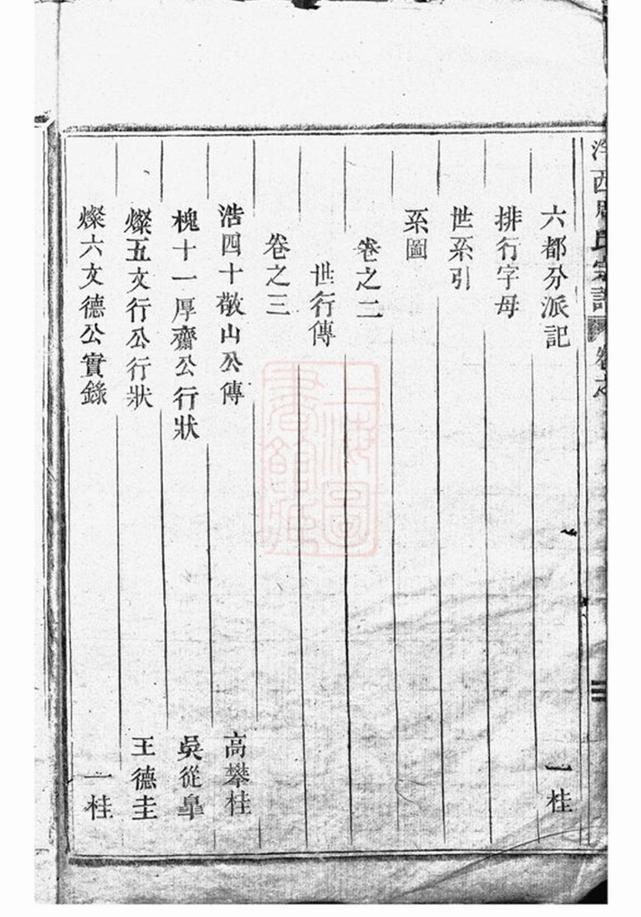 六都分派記 一桂
排行字母
世系引
系圖
卷之二
世行傳
卷之三
浩四十敬山公傳 高攀桂
槐十一厚齋公行狀 吳從皐
燦五文行公行狀 王德圭
燦六文德公實錄 一桂
西周氏宗譜 卷之